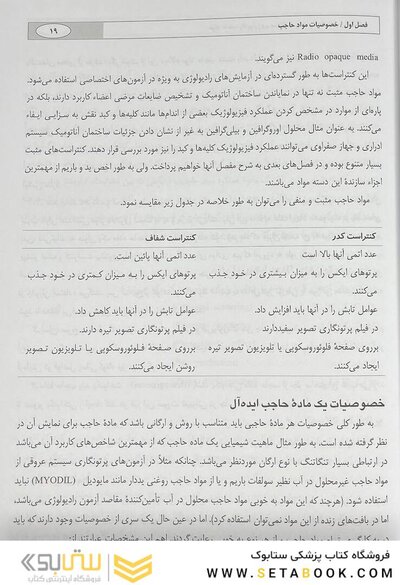 فصل اول / خصوصیات مواد حاجب
۱۹
Radio opaque media نیز می‌گویند.
این کنتراست‌ها به طور گسترده‌ای در آزمایش‌های رادیولوژی به ویژه در آزمون‌های اختصاصی استفاده می‌شود.
مواد حاجب مثبت نه تنها در نمایاندن ساختمان آناتومیک و تشخیص ضایعات مرضی اعضاء کاربرد دارند، بلکه در
پاره‌ای از موارد در مشخص کردن عملکرد فیزیولوژیک بعضی از اندام‌ها مانند کلیه‌ها و کبد نقش به سزایی ایفاء
می‌کنند. به عنوان مثال محلول اوروگرافین و بیلی‌گرافین به غیر از نشان دادن جزئیات ساختمان آناتومیک سیستم
ادراری و جهاز صفراوی می‌توانند عملکرد فیزیولوژیک کلیه‌ها و کبد را نیز مورد بررسی قرار دهند. کنتراست‌های مثبت
بسیار متنوع بوده و در فصل‌های بعدی به شرح مفصل آنها خواهیم پرداخت. ولی به طور اخص ید و باریم از مهمترین
اجزاء سازندهٔ این دسته مواد می‌باشند.
مواد حاجب مثبت و منفی را می‌توان به طور خلاصه در جدول زیر مقایسه نمود.
کنتراست کدر
کنتراست شفاف
عدد اتمی آنها بالا است
عدد اتمی آنها پائین است.
پرتوهای ایکس را به میزان بیشتری در خود جذب
پرتوهای ایکس را به میزان کمتری در خود جذب
می‌کنند.
می‌کنند.
عوامل تابش را در آنها باید افزایش داد.
عوامل تابش را در آنها باید کاهش داد.
در فیلم پرتونگاری سفیددارند
در فیلم پرتونگاری تصویر تیره دارند.
برروی صفحهٔ فلوئوروسکوپی یا تلویزیون تصویر تیره
برروی صفحهٔ فلوئوروسکوپی یا تلویزیون تصویر
ایجاد می‌کنند.
روشن ایجاد می‌کنند.
خصوصیات یک مادهٔ حاجب ایده‌آل
به طور کلی خصوصیات هر مادهٔ حاجبی باید متناسب با روش و ارگانی باشد که مادهٔ حاجب برای نمایش آن در
نظر گرفته شده است. به طور مثال ماهیت شیمیایی یک ماده حاجب که از مهمترین شاخص‌های کاربرد آن می‌باشد
در ارتباطی بسیار تنگاتنگ با نوع ارگان موردنظر می‌باشد. چنانکه مثلاً در آزمون‌های پرتونگاری سیستم عروقی از
مواد حاجب غیرمحلول در آب نظیر سولفات باریم و یا از مواد حاجب روغنی یددار مانند مایودیل (MYODIL) نباید
استفاده شود. (هرچند که این مواد به خوبی مواد حاجب محلول در آب تأمین‌کنندهٔ مقاصد آزمون رادیولوژی می‌باشد،
اما در بافت‌های زنده از این مواد نمی‌توان استفاده کرد). اما در عین حال یک سری از خصوصیات وجود دارند که باید
فروشگاه کتاب پزشکی ستابوک
WWW.SETABOOK.COM
ستابوک
فروشگاه اینترنتی کتاب